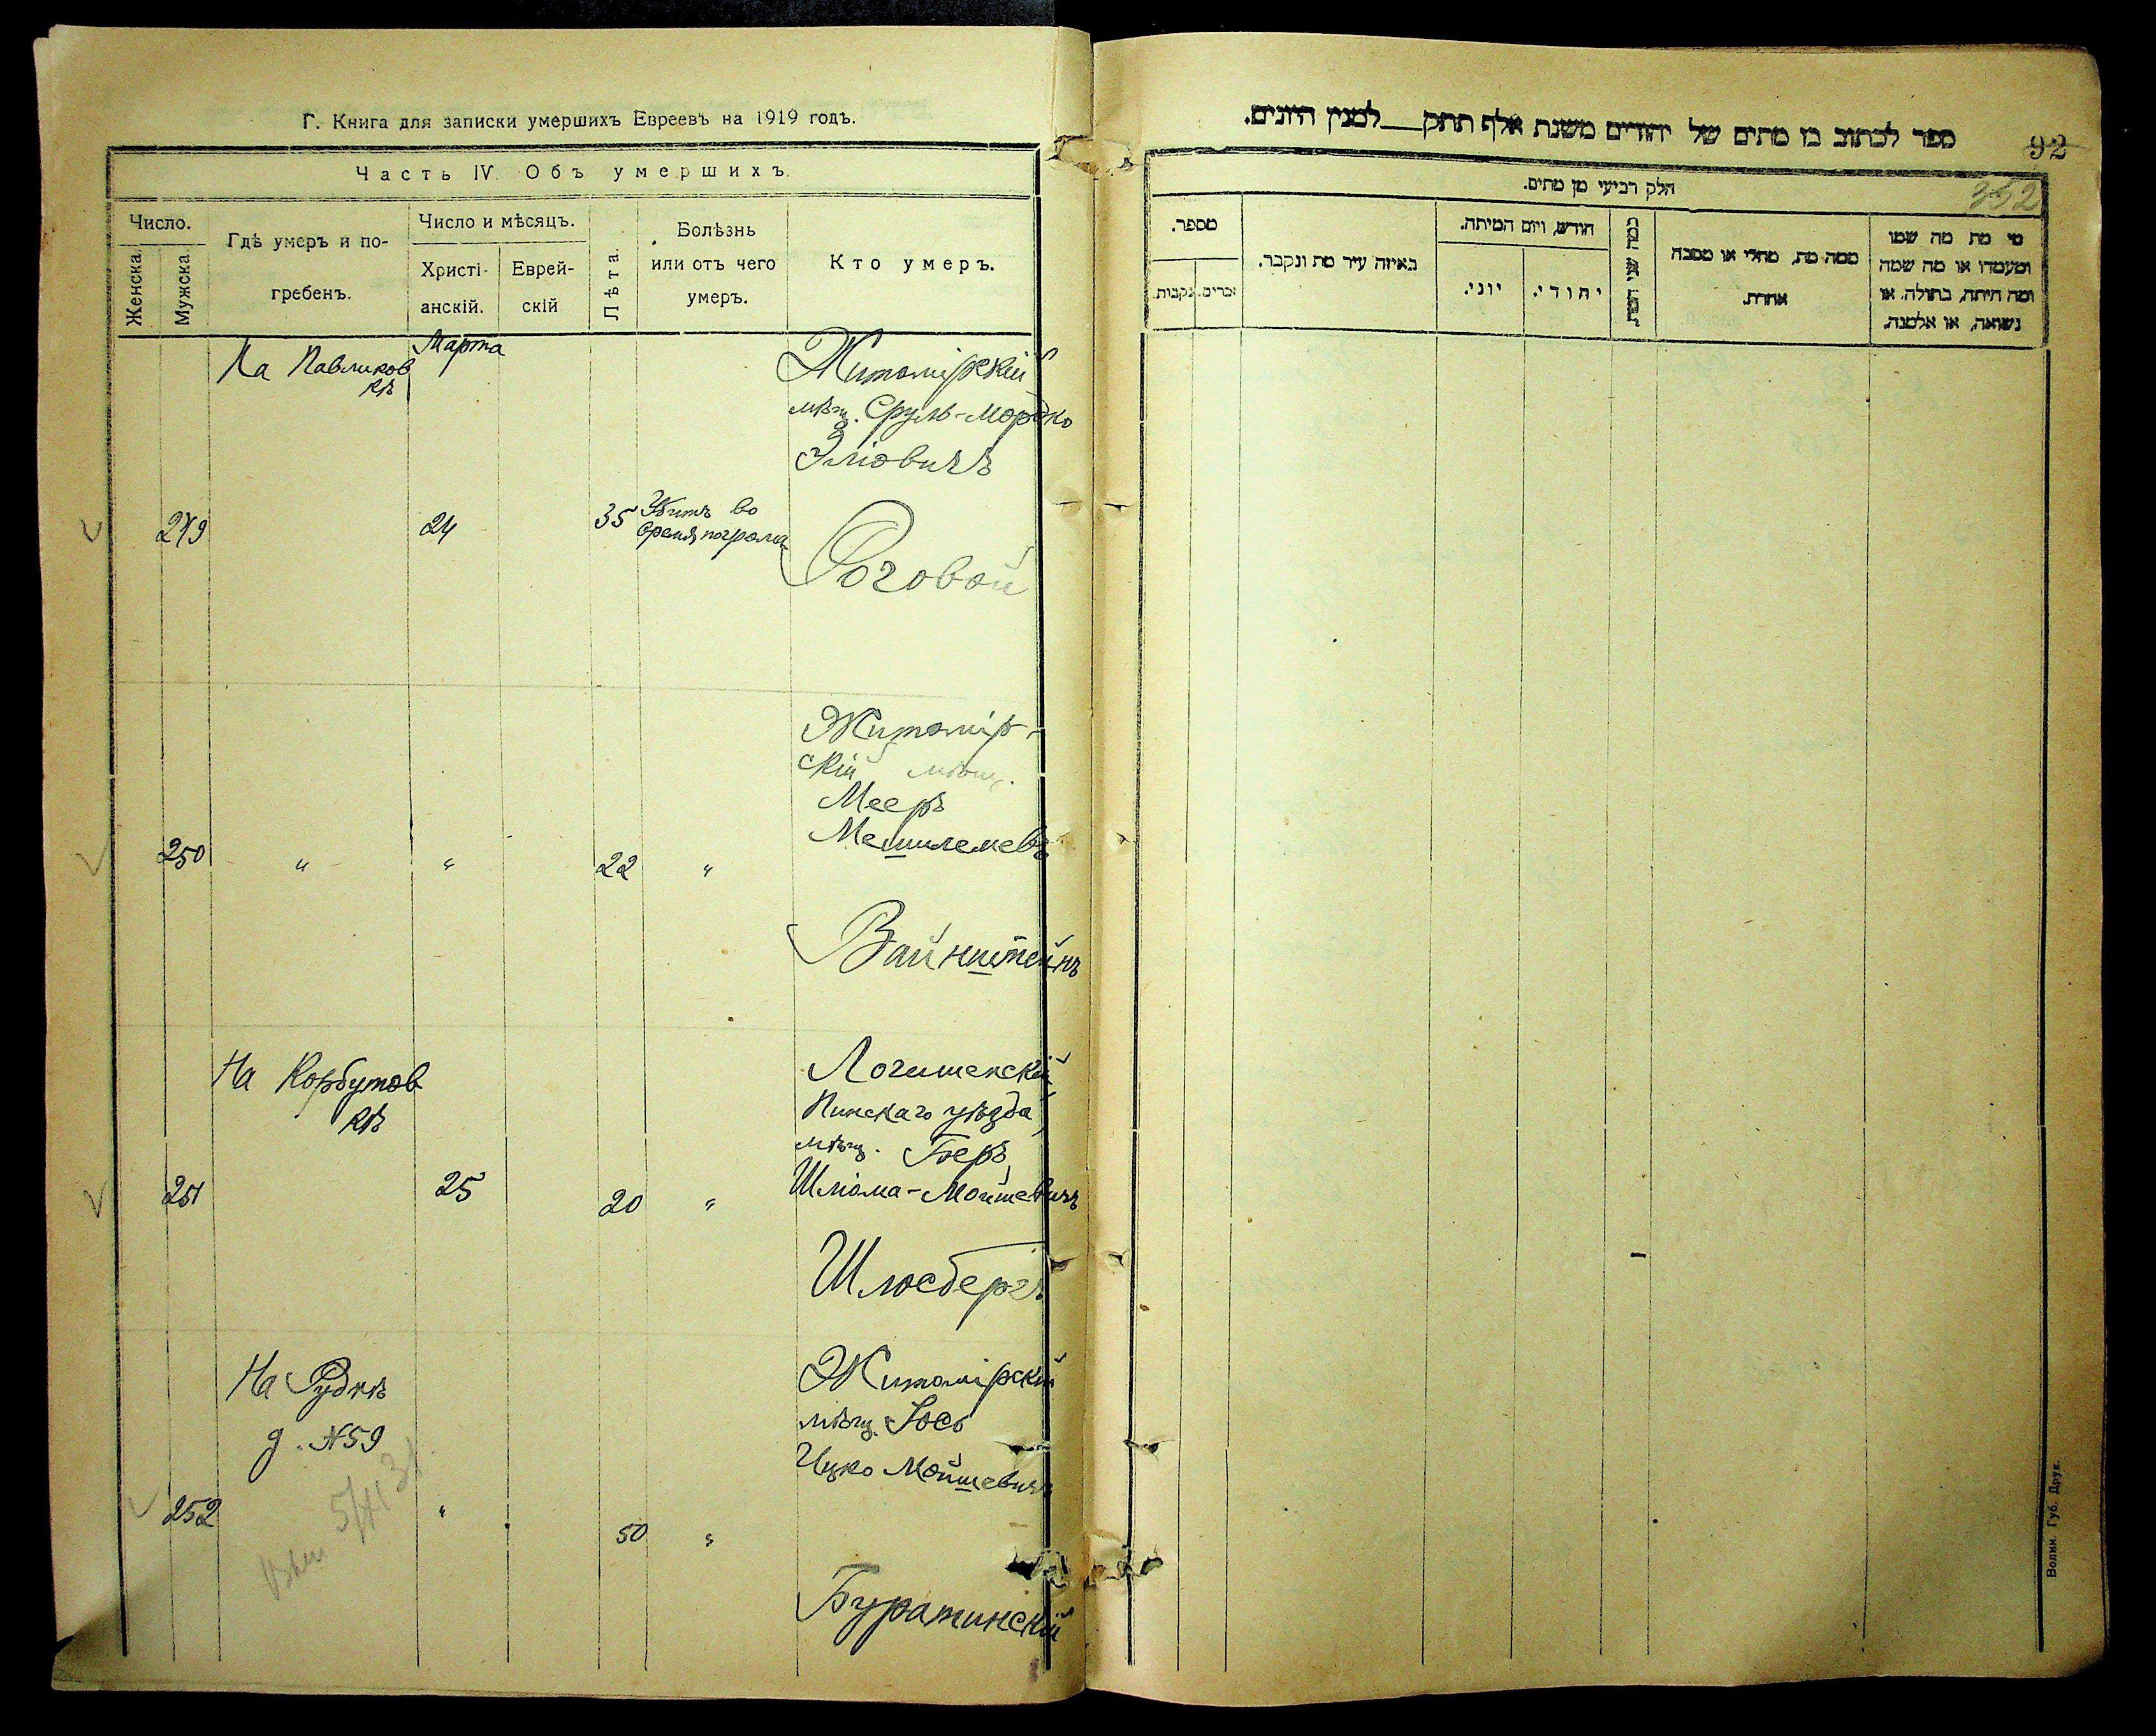 Г. Книга для записки умершихъ Евреевъ на 1919 годъ.
Часть IV. Объ умершихъ.
Число.
Женска
Мужска
Гдѣ умеръ и по-
гребенъ.
Число и мѣсяцъ.
Христі-
анскій.
Еврей-
скій
Лѣта.
Болѣзнь
или отъ чего
умеръ.
Кто умеръ.
На Павликов
кѣ
Марта
249
24
35
Убитъ во
время погрома
Житомірскій
мѣщ. Сруль-Мордко
Эліовичъ
Роговой
250
"
"
22
"
Житомір-
скій мѣщ.
Мееръ
Вайнштейнъ
На Корбутов
кѣ
251
25
20
"
Логишенскій
Пинскаго уѣзда
мѣщ. Беръ
Шліома-Мойшевичъ
Шлюсбергъ
На Руднѣ
д. №59
252
"
50
"
Житомірскій
мѣщ. Іось
Ицко Мойшевичъ
Буратинскій
ספר לכתוב בו מתים של יהודים משנת אלף תתק___למנין היונים.
92
352
חלק רביעי מן מתים.
מספר.
זכרים.
נקבות.
באיזה עיר מת ונקבר.
חודש, ויום המיתה.
יוני.
יהודי.
ממה מת, מחלי או מסבה
אחרת.
מי מת מה שמו
ומעמדו או מה שמה
ומה היתה, בתולה, או
נשואה, או אלמנה.
Волин. Губ. Друк.